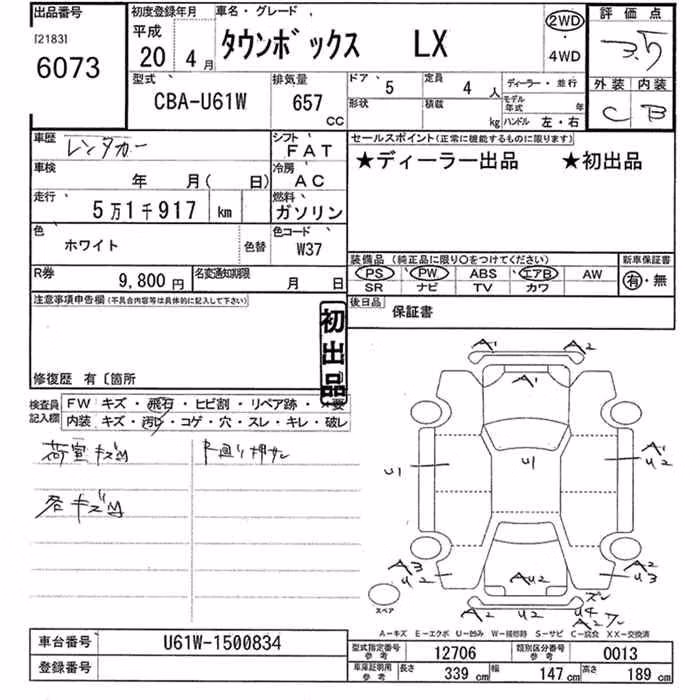 出品番号
[2183]
6073
初度登録年月
平成
20年 4月
車名・グレード
タウンボックス LX
2WD
・
4WD
評価点
3.5
外装 内装
C B
型式
CBA-U61W
排気量
657
CC
ドア 5
定員 4人
形状
積載 kg
ディーラー・並行
モデル年式 年
ハンドル 左・右
車歴 レンタカー
シフト FAT
車検 年 月( 日)
冷房 AC
走行 5万1千917 km
燃料 ガソリン
色 ホワイト 色替
色コード W37
R券 9,800円
名変通知期限 月 日
セールスポイント(正常に機能するものに限ります)
★ディーラー出品 ★初出品
装備品(純正品に限り○をつけてください)
PS PW ABS エアB AW
SR ナビ TV カワ
新車保証書
有・無
後日品 保証書
注意事項申告欄(不具合内容等は具体的に記入して下さい)
初出品
修復歴 有〔箇所
検査員記入欄
FW キズ・飛石・ヒビ割・リペア跡・×要
内装 キズ・汚レ・コゲ・穴・スレ・キレ・破レ
荷室キズM
各キズM
下廻リサビ
A1 A2
A1
U1 U1
A1
U2
A3
U2
AU2
A2
U3
A2 U2
U4
A2
スペア
A-キズ E-エクボ U-凹み W-補修跡 S-サビ C-腐食 XX-交換済
車台番号 U61W-1500834
登録番号
型式指定番号 参考 12706
類別区分番号 参考 0013
車庫証明用 参考 長さ 339cm 幅 147cm 高さ 189cm